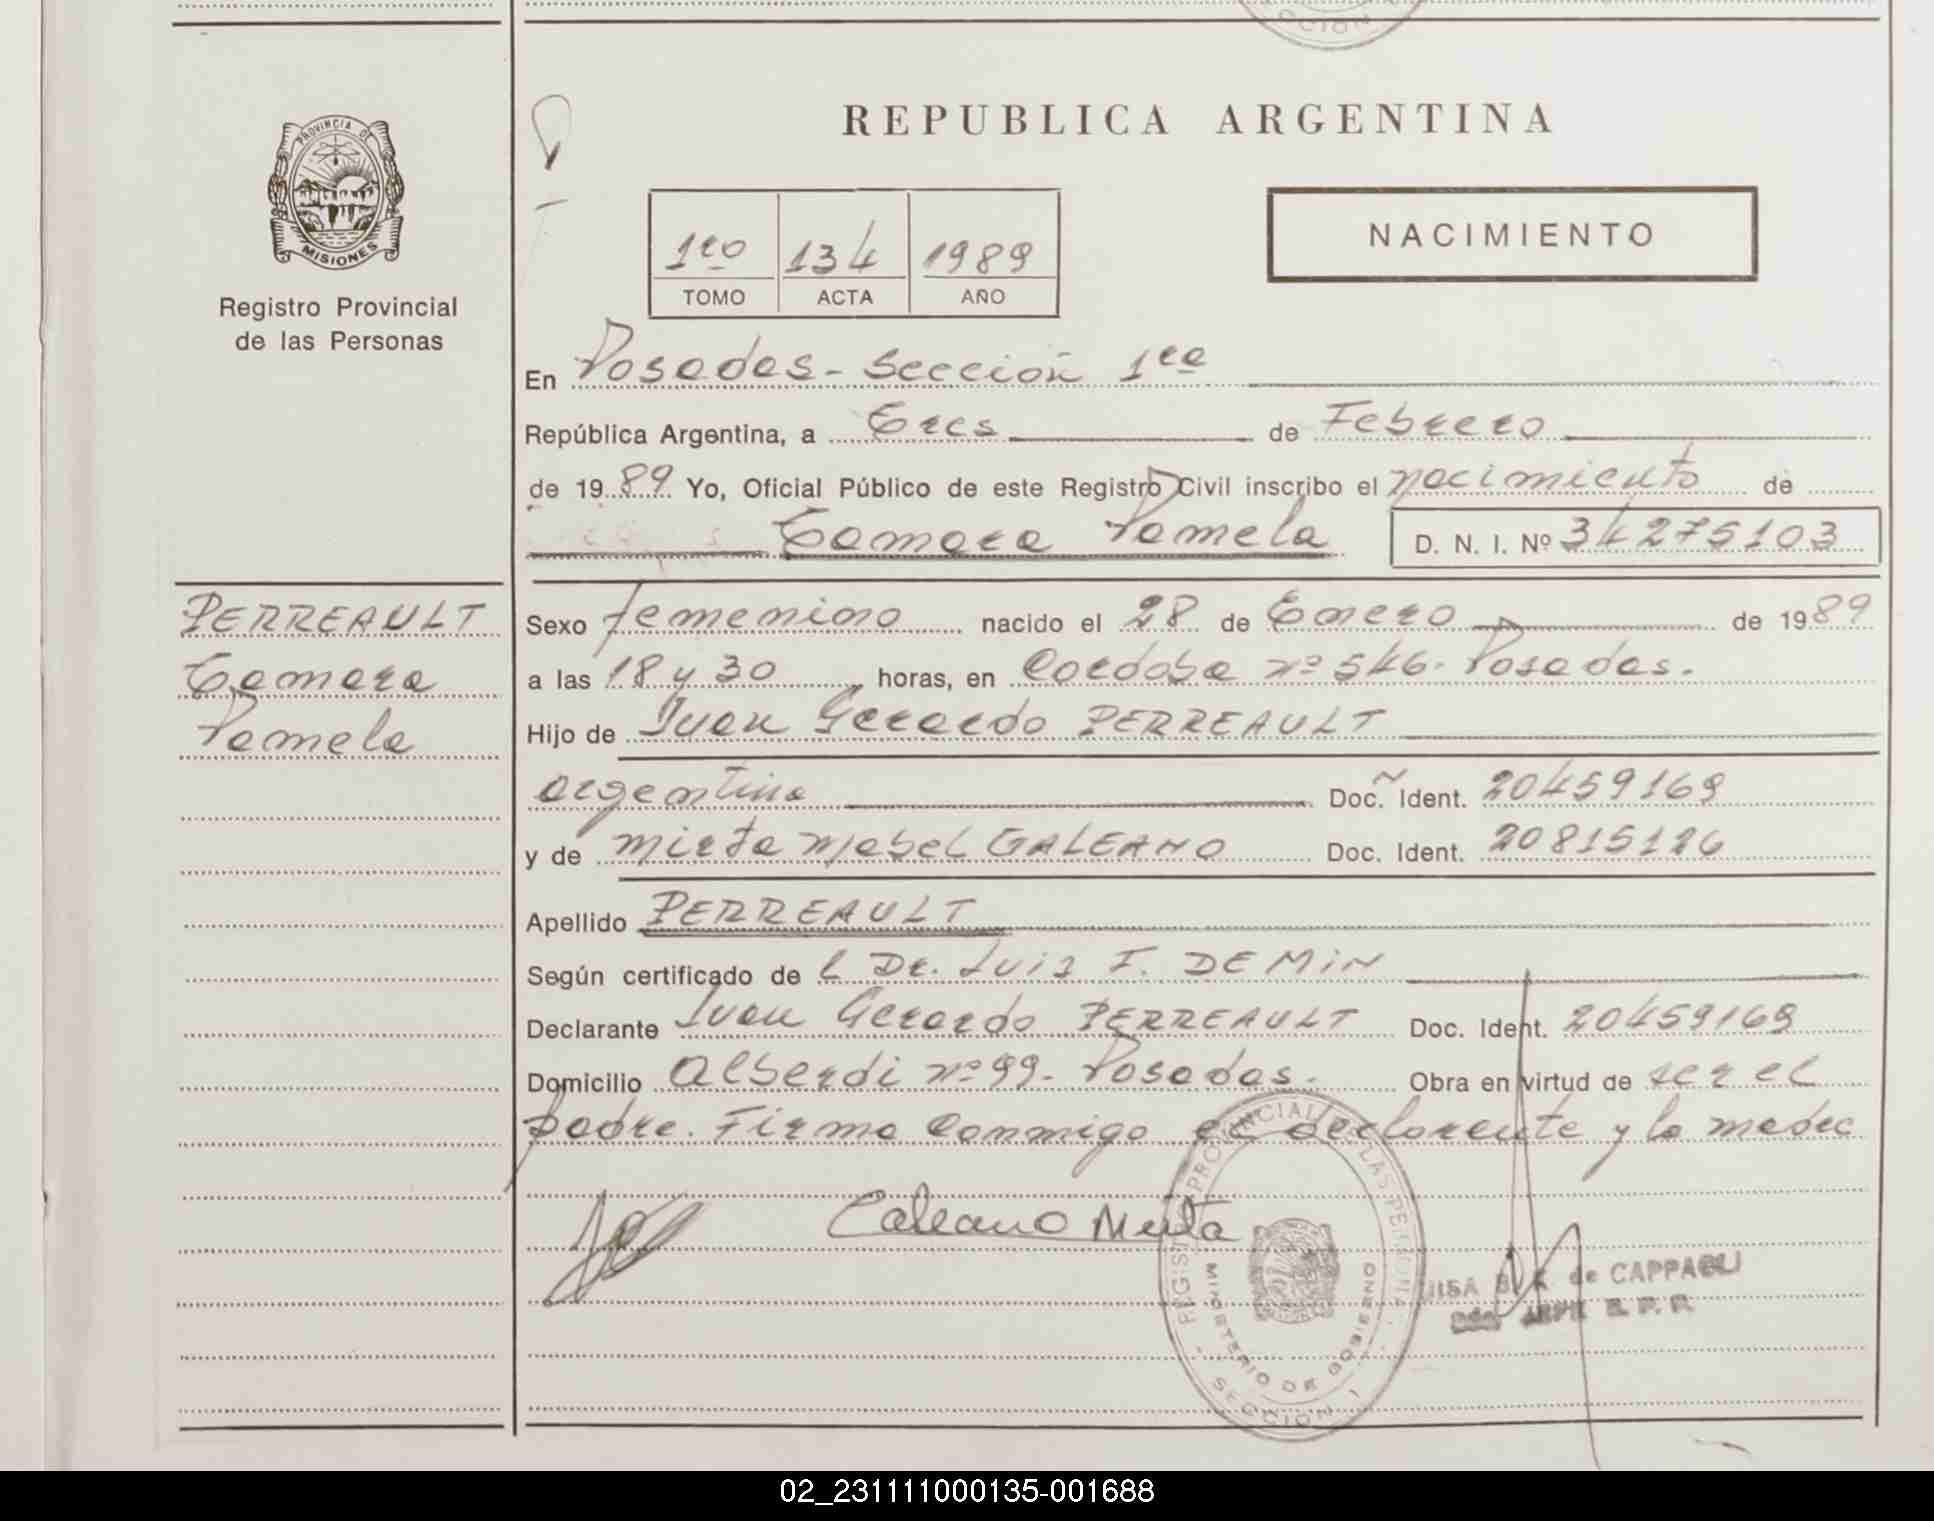 CCION
PROVINCIA DE
MISIONES
Registro Provincial
de las Personas
REPUBLICA ARGENTINA
1ro 134 1989
TOMO ACTA AÑO
NACIMIENTO
En Posadas - Sección 1ra
República Argentina, a Tres de Febrero
de 1989 Yo, Oficial Público de este Registro Civil inscribo el nacimiento de
Tamara Pamela D. N. I. Nº 34275103
PERREAULT
Tamara
Pamela
Sexo femenino nacido el 28 de Enero de 1989
a las 18 y 30 horas, en Cordoba nº 546. Posadas.
Hijo de Juan Gerardo PERREAULT
argentino Doc. Ident. 20459169
y de Mirta Mabel GALEANO Doc. Ident. 20815126
Apellido PERREAULT
Según certificado de l Dr. Luis F. DEMIN
Declarante Juan Gerardo PERREAULT Doc. Ident. 20459169
Domicilio Alberdi nº 99- Posadas. Obra en virtud de ser el
padre. Firma conmigo el declarante y la madre
Galeano Mirta
REGISTRO PROVINCIAL DE LAS PERSONAS
MINISTERIO DE GOBIERNO
SECCION 1
de CAPPAGLI
R. P. P.
02_231111000135-001688